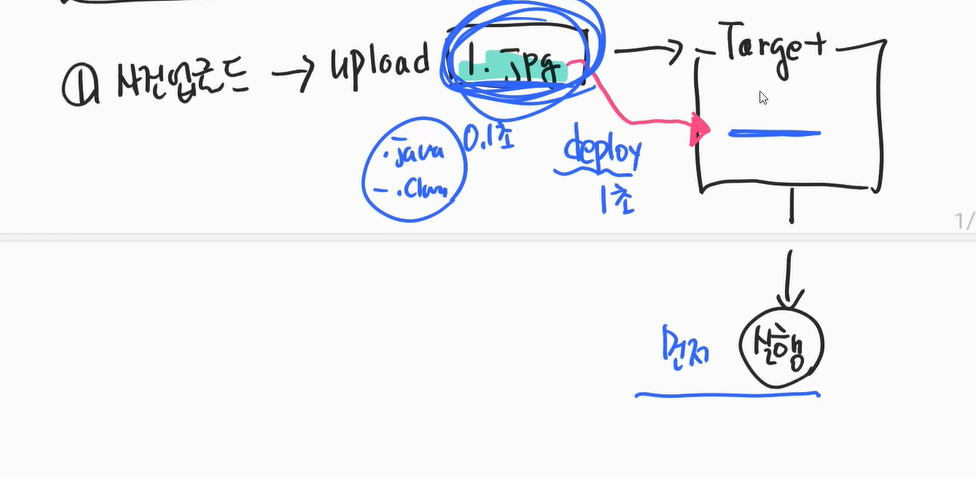 ① 사진업로드 → upload 1.jpg → Target
.java 0.1초
- .Class
deploy
1초
1/
먼저 실행